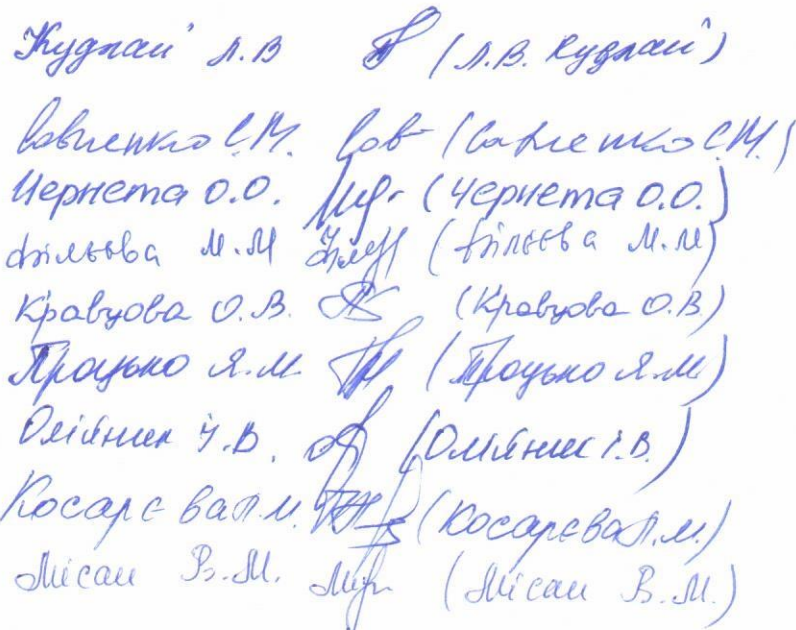 Кудлай Л.В (Л.В. Кудлай)
Савленко С.М. Сав (Савленко С.М.)
Чернета О.О. (Чернета О.О.)
М.М (М.М)
Кравцова О.В. (Кравцова О.В)
Процько Я.М. (Процько Я.М)
Олійник І.В. (Олійник І.В.)
Косарєва Л.М. (Косарєва Л.М.)
Місан В.М. (Місан В.М.)